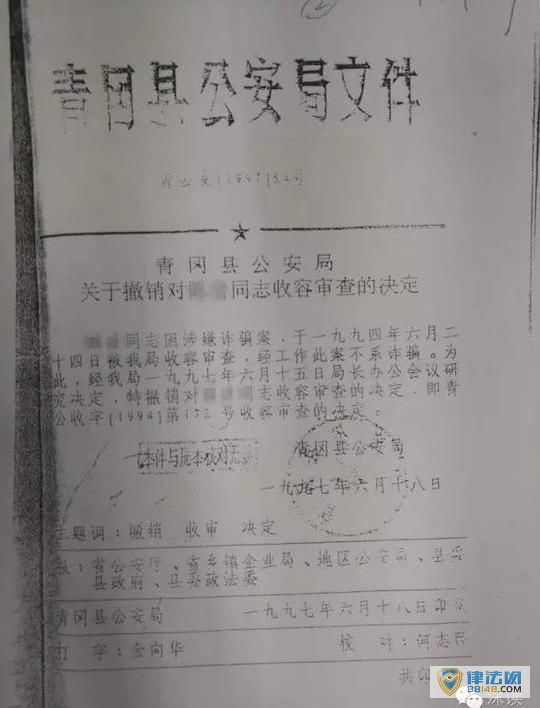 ②
青冈县公安局文件
青公发[1997]52号
青冈县公安局
关于撤销对 同志收容审查的决定
同志因涉嫌诈骗案，于一九九四年六月二
十四日被我局收容审查，经工作此案不系诈骗。为
此，经我局一九九七年六月十五日局长办公会议研
究决定，特撤销对 同志收容审查的决定，即青
公收字[1994]第172号收容审查的决定。
本件与原本核对无
青冈县公安局
一九九七年六月十八日
主题词：撤销 收审 决定
报：省公安厅、省乡镇企业局、地区公安局、县委
县政府、县委政法委
青冈县公安局 一九九七年六月十八日印发
打字：金向华 校对：何志民
共印
律法网
88148.com